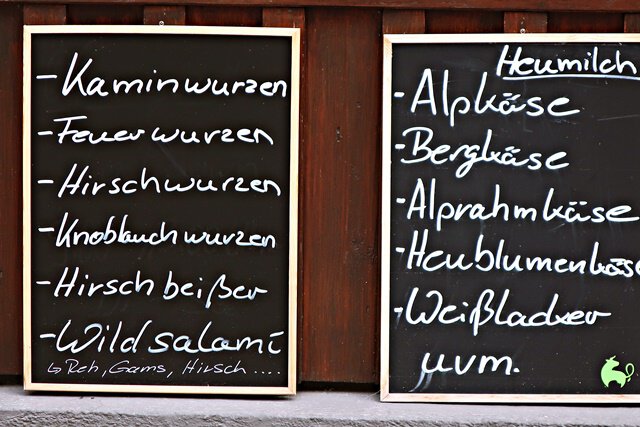 - Kaminwurzen
- Feuerwurzen
- Hirschwurzen
- Knoblauchwurzen
- Hirschbeißer
- Wildsalami
↳ Reh, Gams, Hirsch ....
Heumilch
- Alpkäse
- Bergkäse
- Alprahmkäse
- Heublumenkäse
- Weißlacker
uvm.